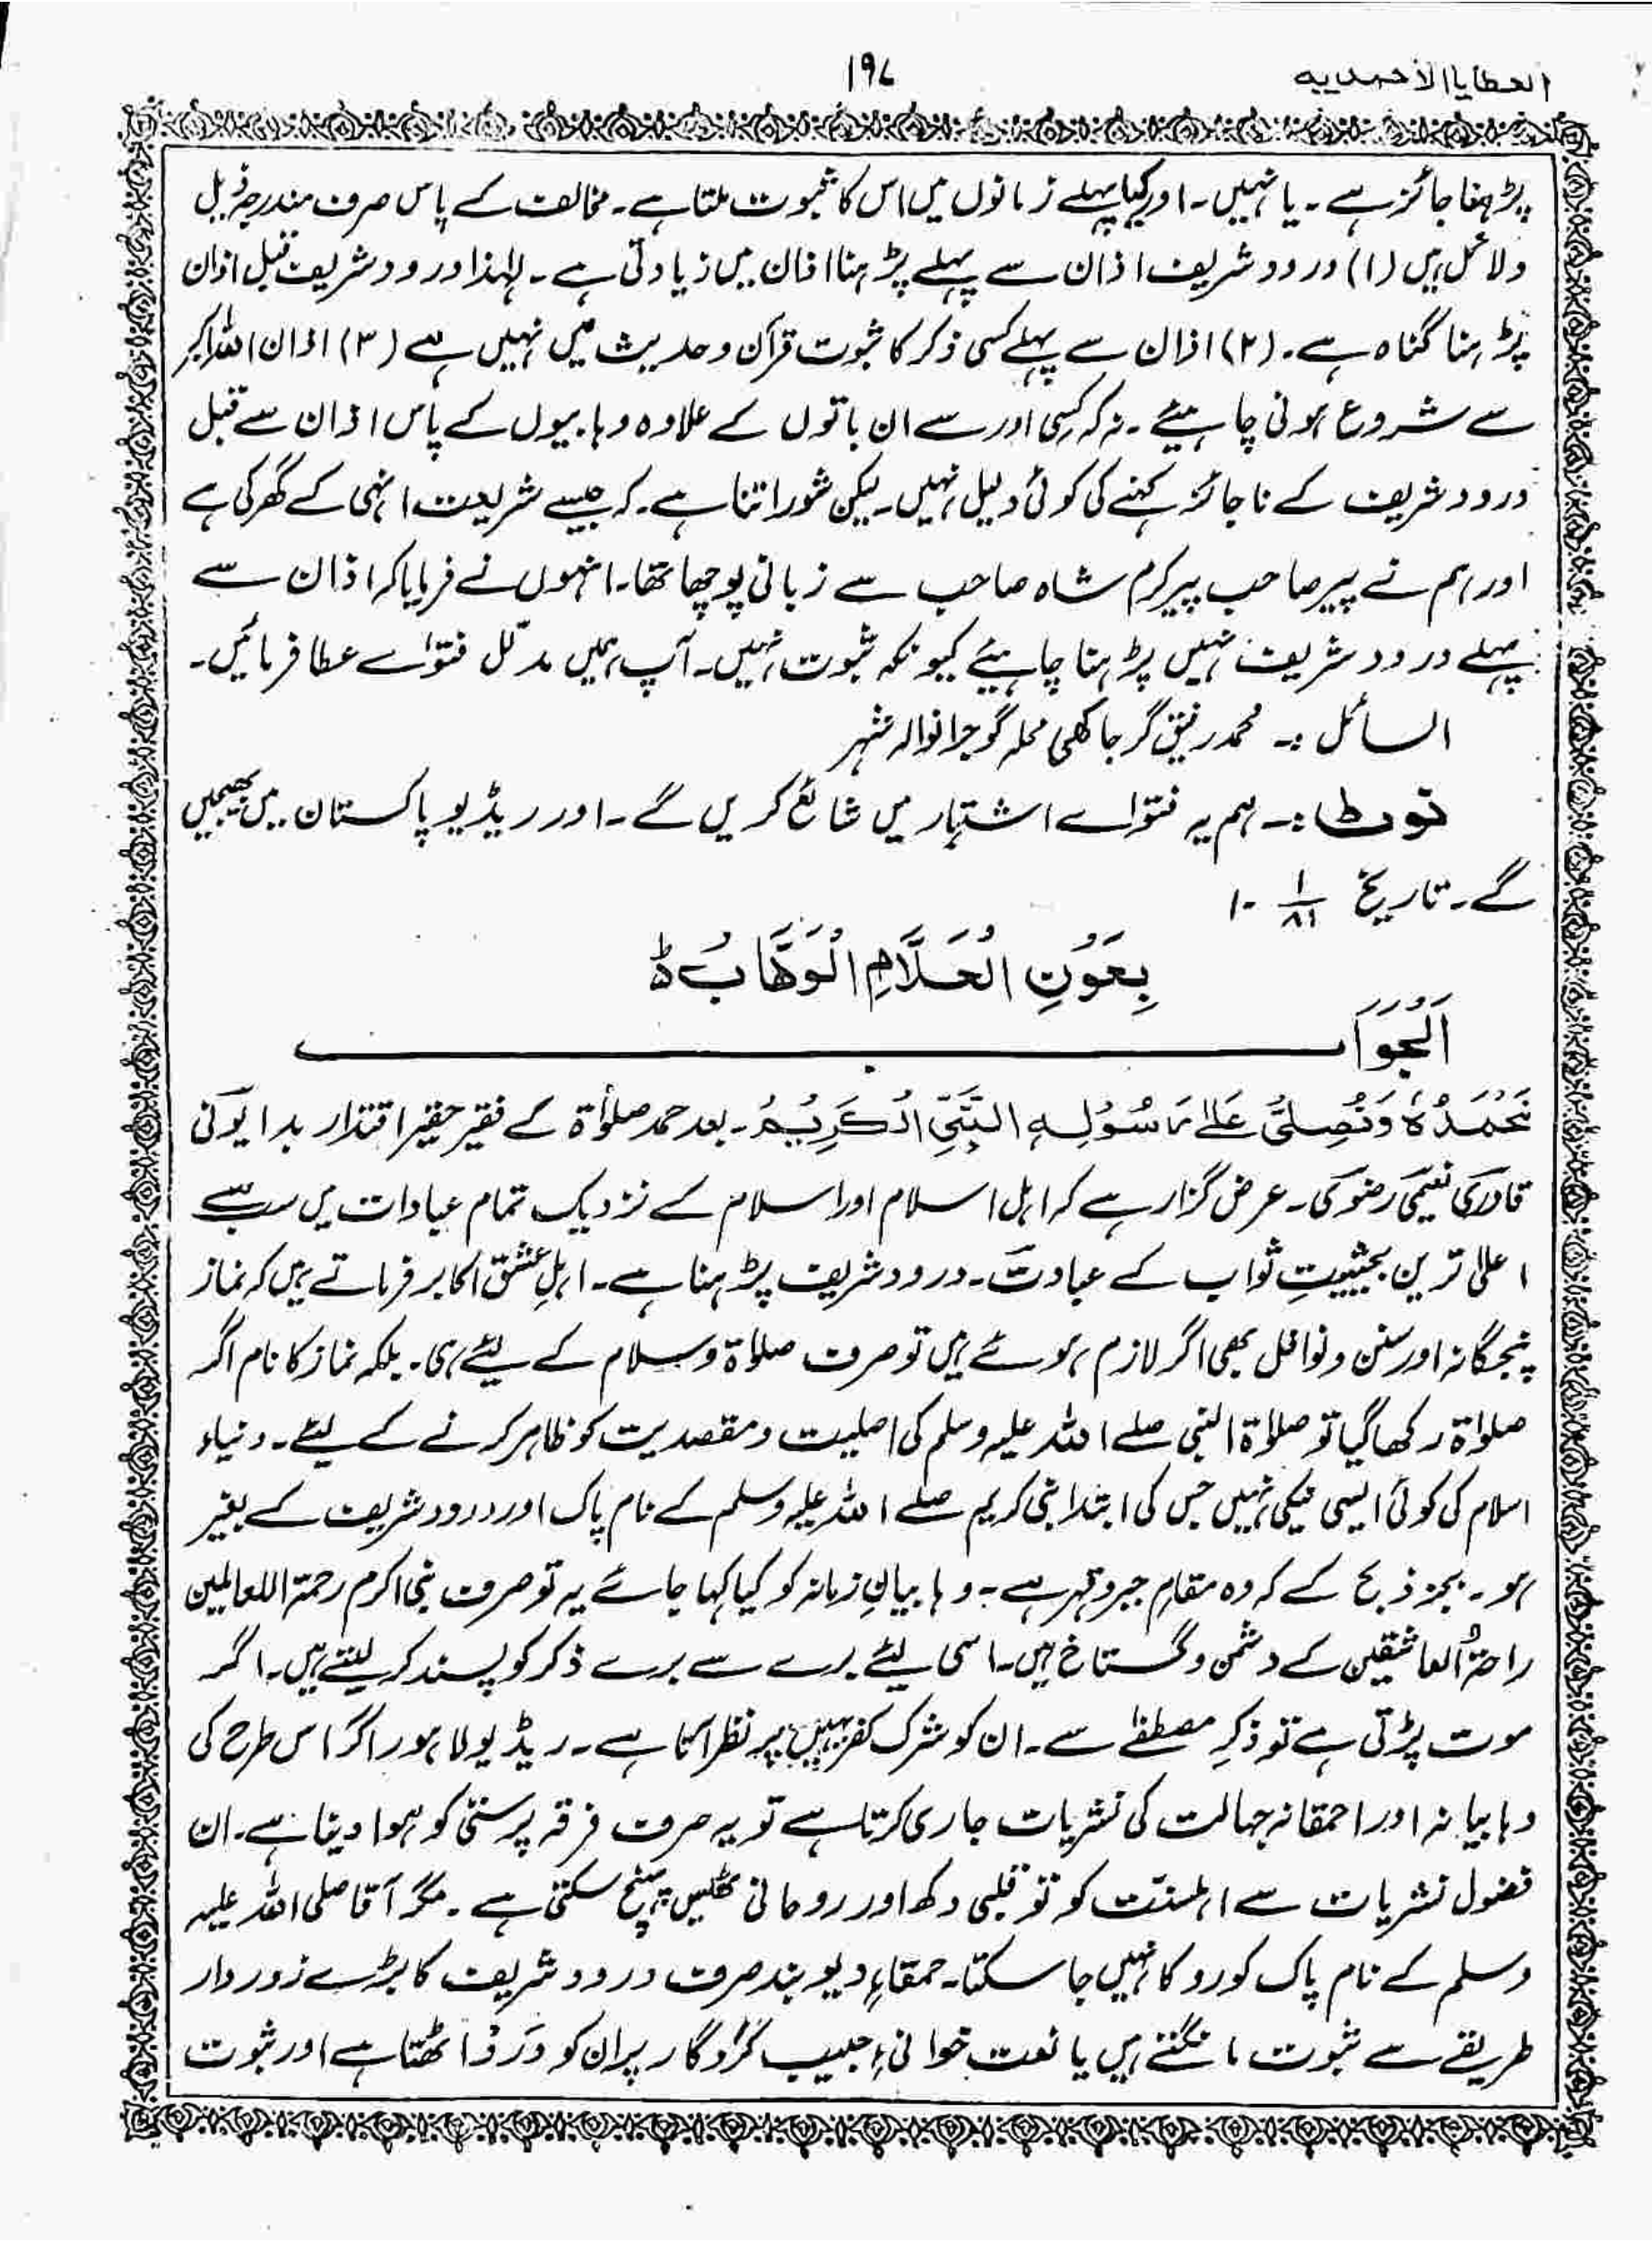 العطایا الاحمدیہ
۱۹۷
پڑہنا جائز ہے۔ یا نہیں۔ اور کیا پہلے زمانوں میں اس کا ثبوت ملتا ہے۔ مخالف کے پاس صرف مندرجہ ذیل
دلائل ہیں (۱) درود شریف اذان سے پہلے پڑہنا اذان میں زیادتی ہے۔ لہٰذا درود شریف قبل اذان
پڑہنا گناہ ہے۔ (۲) اذان سے پہلے کسی ذکر کا ثبوت قرآن و حدیث میں نہیں ہے (۳) اذان اللہ اکبر
سے شروع ہونی چاہیئے۔ نہ کہ کسی اور سے ان باتوں کے علاوہ وہابیوں کے پاس اذان سے قبل
درود شریف کے ناجائز کہنے کی کوئی دلیل نہیں۔ لیکن شور اتنا ہے۔ کہ جیسے شریعت انہی کے گھر کی ہے
اور ہم نے پیر صاحب پیر کرم شاہ صاحب سے زبانی پوچھا تھا۔ انہوں نے فرمایا کہ اذان سے
پہلے درود شریف نہیں پڑہنا چاہیئے کیونکہ ثبوت نہیں۔ آپ ہمیں مدلّل فتوٰے عطا فرمائیں۔
السائل :۔ محمد رفیق گرجاکھی محلہ گوجرانوالہ شہر
نوٹ :۔ ہم یہ فتوٰے اشتہار میں شائع کریں گے۔ اور ریڈیو پاکستان میں بھیجیں
گے۔ تاریخ ۱/۸۱ ۔۱۰
بِعَوْنِ الْعَلَّامِ الْوَهَّابُ ط
اَلْجَوَابـــــ
نَحْمَدُهٗ وَنُصَلِّیْ عَلٰی رَسُوْلِهِ النَّبِیِّ الْکَرِیْمُ۔ بعد حمد صلوٰۃ کے فقیر حقیر اقتدار بدایونی
قادری نعیمی رضوی۔ عرض گزار ہے کہ اہل اسلام اور اسلام کے نزدیک تمام عبادات میں سب سے
اعلیٰ ترین بحیثیتِ ثواب کے عبادت۔ درود شریف پڑہنا ہے۔ اہلِ عشق اکابر فرماتے ہیں کہ نماز
پنجگانہ اور سنن و نوافل بھی اگر لازم ہوئے ہیں تو صرف صلوٰۃ و سلام کے لیئے ہی۔ بلکہ نماز کا نام اگر
صلوٰۃ رکھا گیا تو صلوٰۃ النبی صلے اللہ علیہ وسلم کی اصلیت و مقصدیت کو ظاہر کرنے کے لیئے۔ دنیاء
اسلام کی کوئی ایسی نیکی نہیں جس کی ابتدا نبی کریم صلے اللہ علیہ وسلم کے نام پاک اور درود شریف کے بغیر
ہو۔ بجز ذبح کے کہ وہ مقامِ جبر و قہر ہے۔ وہابیانِ زمانہ کو کیا کہا جائے یہ تو صرف نبی اکرم رحمۃ اللعالمین
راحۃُ العاشقین کے دشمن و گستاخ ہیں۔ اسی لیئے برے سے برے ذکر کو پسند کر لیتے ہیں۔ اگر
موت پڑتی ہے تو ذکرِ مصطفےٰ سے۔ ان کو شرک کفر یہیں پر نظر آتا ہے۔ ریڈیو لاہور اگر اس طرح کی
وہابیانہ اور احمقانہ جہالت کی نشریات جاری کرتا ہے تو یہ صرف فرقہ پرستی کو ہوا دینا ہے۔ ان
فضول نشریات سے اہلسنّت کو تو قلبی دکھ اور روحانی ٹھیس پہنچ سکتی ہے۔ مگر آقا صلی اللہ علیہ
وسلم کے نام پاک کو روکا نہیں جا سکتا۔ حمقاءِ دیوبند صرف درود شریف کا بڑے زوردار
طریقے سے ثبوت مانگتے ہیں یا نعت خوانیِ حبیب کردگار پر ان کو دَردْ اٹھتا ہے اور ثبوت